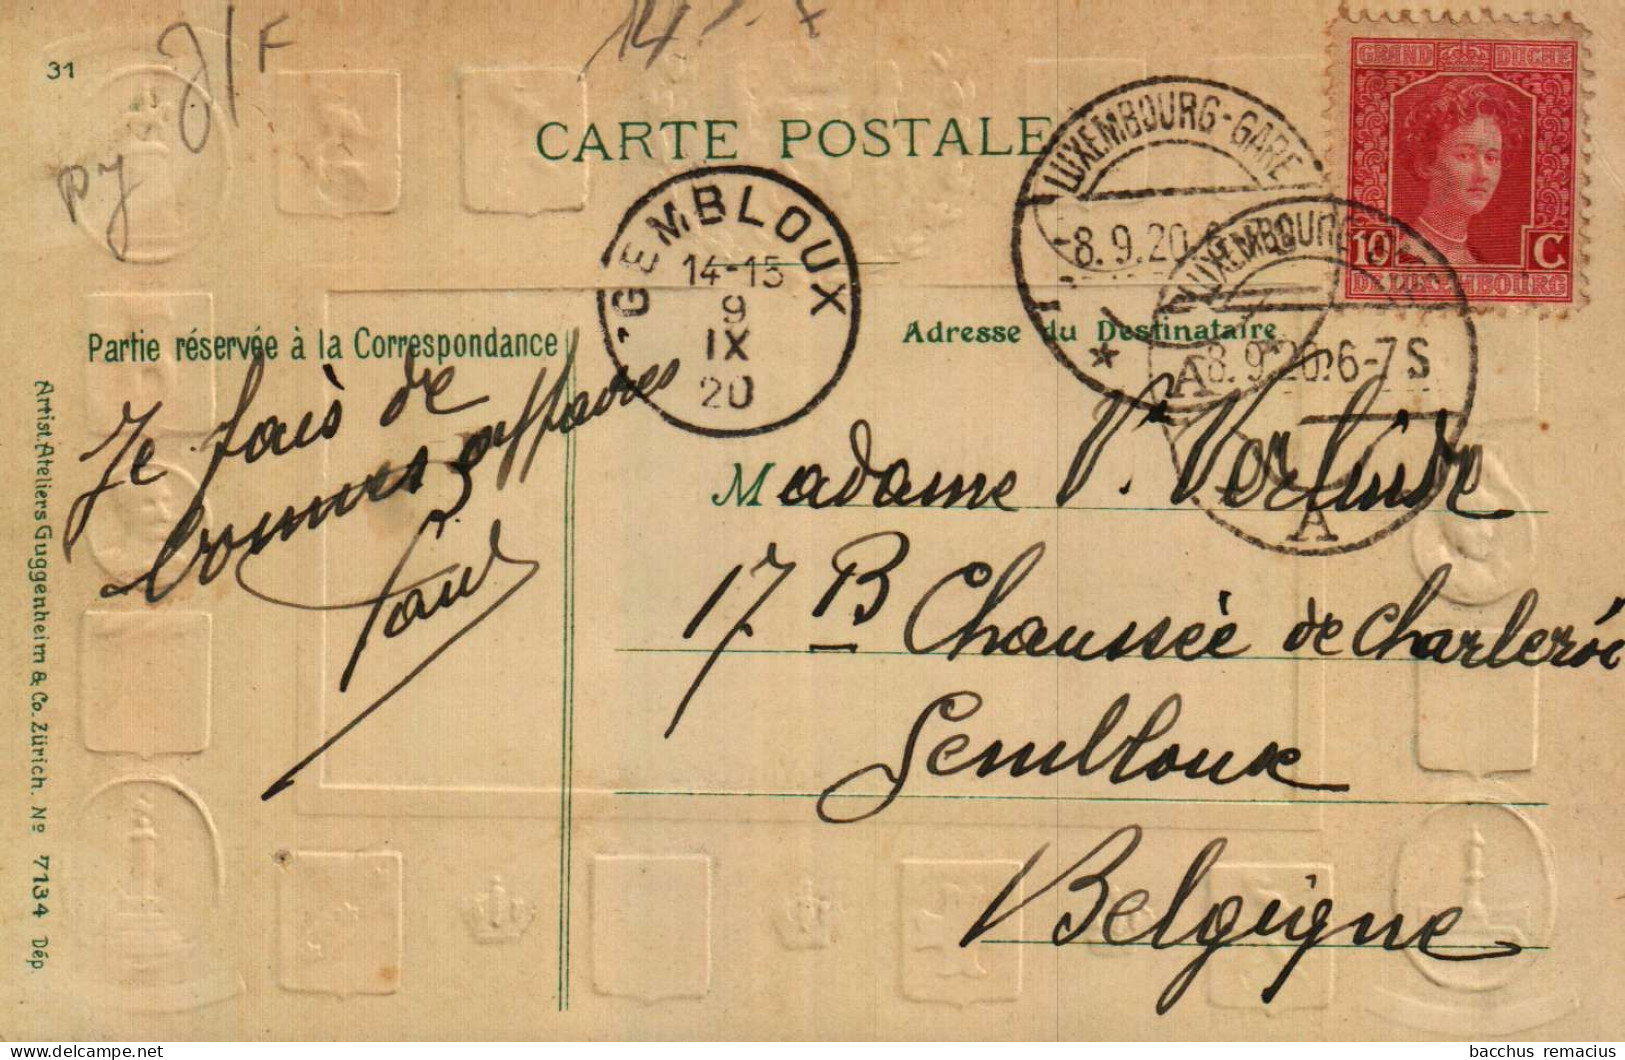 31
CARTE POSTALE
GRAND DUCHÉ
10 C
DE LUXEMBOURG
LUXEMBOURG-GARE
8.9.20
LUXEMBOURG-GARE
8.9.20.6-7S
A
A
GEMBLOUX
14-15
9
IX
20
Partie réservée à la Correspondance
Adresse du Destinataire
Je fais de
bonnes affaires
Paul
Madame Vᵉ Verlinde
17 B Chaussée de Charleroi
Gembloux
Belgique
Artist. Ateliers Guggenheim & Co. Zürich. Nº 7134 Dép.
bacchus remacius